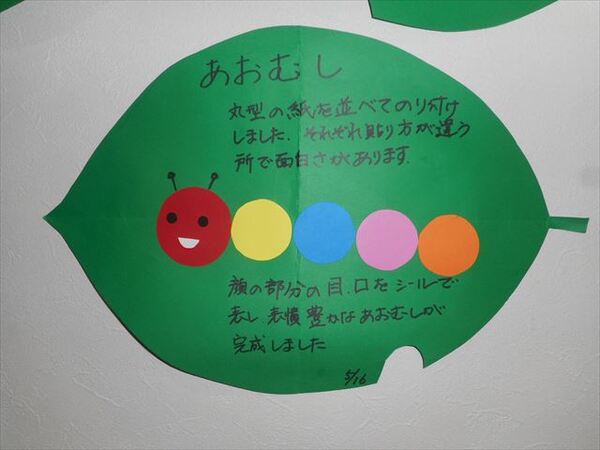 あおむし
丸型の紙を並べてのり付け
しました。それぞれ貼り方が違う
所で面白さがあります。
顔の部分の目、口をシールで
表し、表情豊かなあおむしが
完成しました
5/16